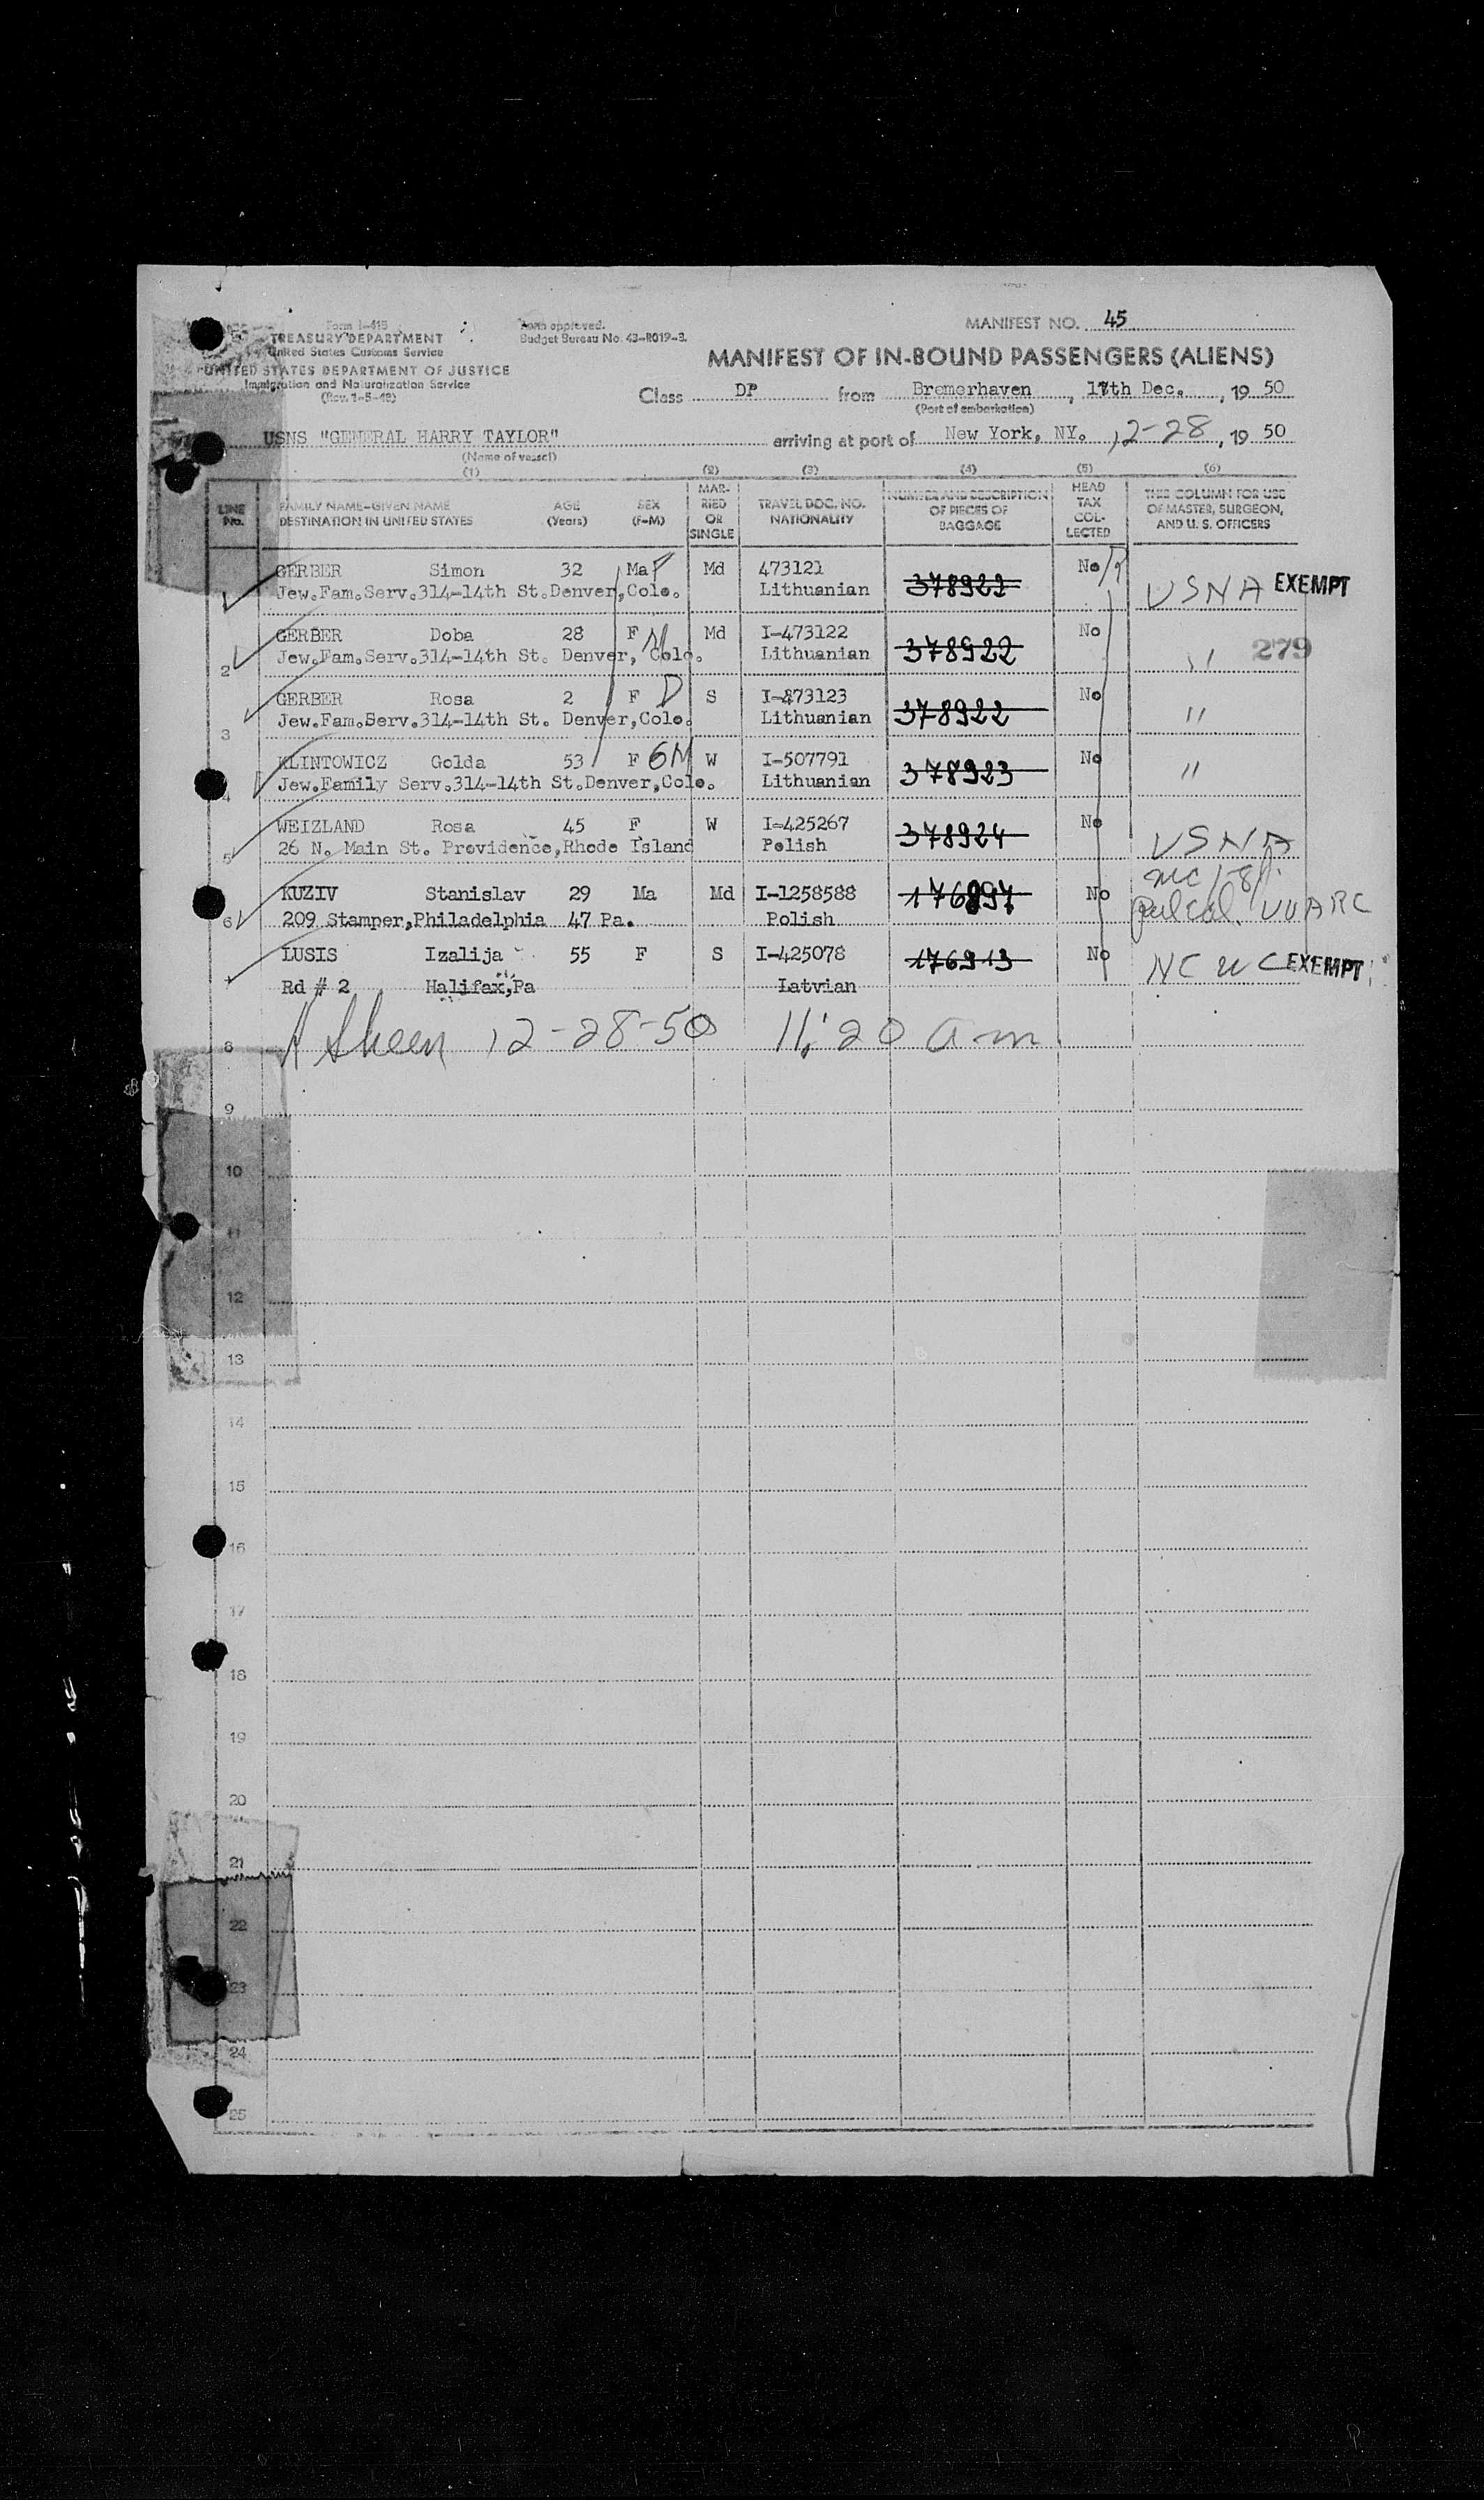 Form I-415
TREASURY DEPARTMENT
United States Customs Service
UNITED STATES DEPARTMENT OF JUSTICE
Immigration and Naturalization Service
(Rev. 1-5-48)
Form approved.
Budget Bureau No. 43-R019-3.
MANIFEST NO. 45
MANIFEST OF IN-BOUND PASSENGERS (ALIENS)
Class DP from Bremerhaven, 17th Dec., 19 50
(Port of embarkation)
USNS "GENERAL HARRY TAYLOR" arriving at port of New York, NY. 12-28, 19 50
(Name of vessel)
(1) (2) (3) (4) (5) (6)
LINE No. FAMILY NAME-GIVEN NAME AGE SEX MARRIED OR SINGLE TRAVEL DOC. NO. NUMBER AND DESCRIPTION OF PIECES OF BAGGAGE HEAD TAX COLLECTED THIS COLUMN FOR USE OF MASTER, SURGEON, AND U. S. OFFICERS
DESTINATION IN UNITED STATES (Years) (F-M) NATIONALITY
GERBER Simon 32 Ma F Md 473121 378922 No USNA EXEMPT
Jew.Fam.Serv.314-14th St.Denver,Colo. Lithuanian
2 GERBER Doba 28 F M Md I-473122 378922 No " 279
Jew.Fam.Serv.314-14th St. Denver, Colo. Lithuanian
3 GERBER Rosa 2 F D S I-473123 378922 No "
Jew.Fam.Serv.314-14th St. Denver,Colo. Lithuanian
4 KLINTOWICZ Golda 53 F GM W I-507791 378923 No "
Jew.Family Serv.314-14th St.Denver,Colo. Lithuanian
5 WEIZLAND Rosa 45 F W I-425267 378924 No USNA
26 N. Main St. Providence,Rhode Island Polish
6 KUZIV Stanislav 29 Ma Md I-1258588 176897 No UUARC
209 Stamper,Philadelphia 47 Pa. Polish
LUSIS Izalija 55 F S I-425078 176913 No NCWC EXEMPT
Rd # 2 Halifax,Pa Latvian
8 A Sheen 12-28-50 11:20 am
9
10
11
12
13
14
15
16
17
18
19
20
21
22
23
24
25